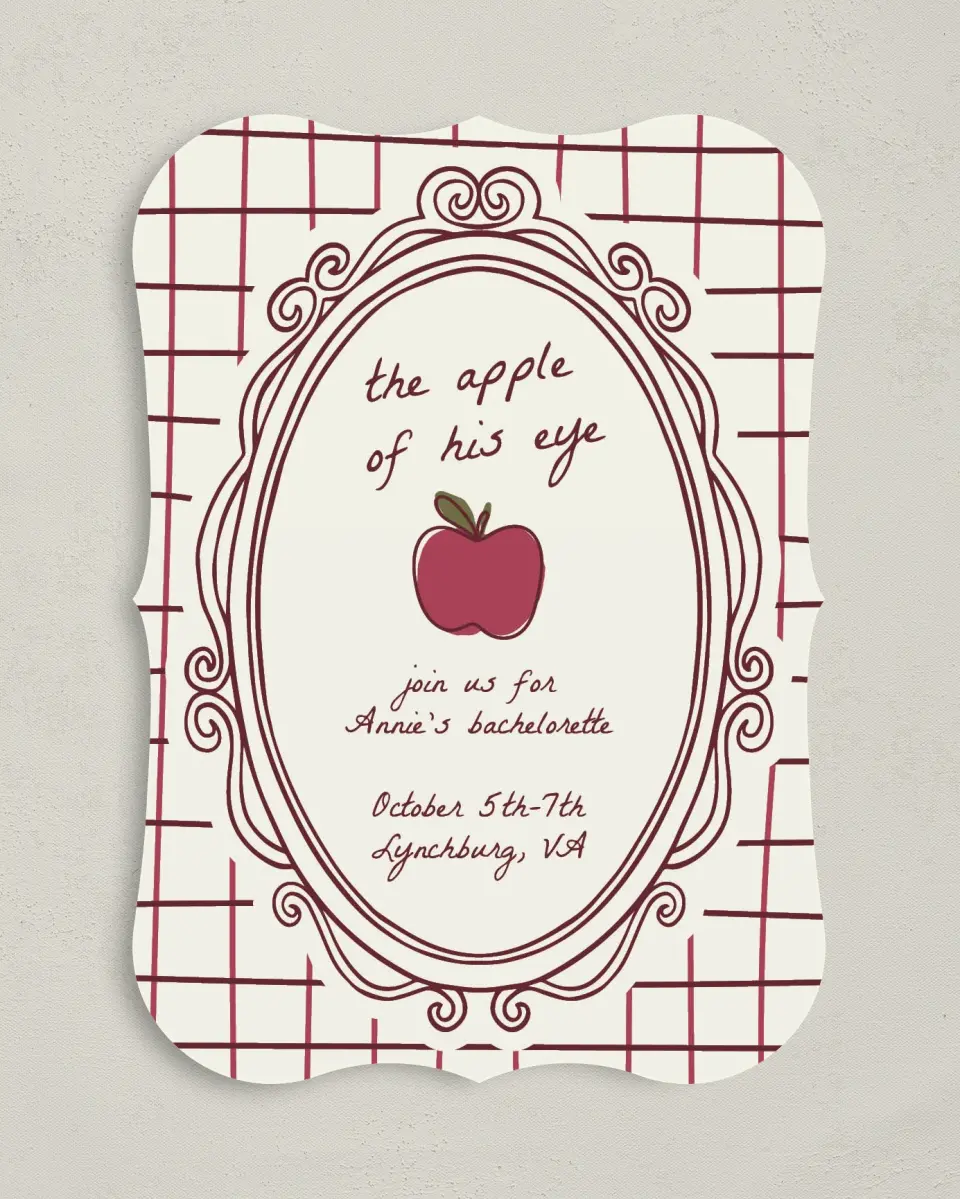 the apple
of his eye
join us for
Annie's bachelorette
October 5th-7th
Lynchburg, VA